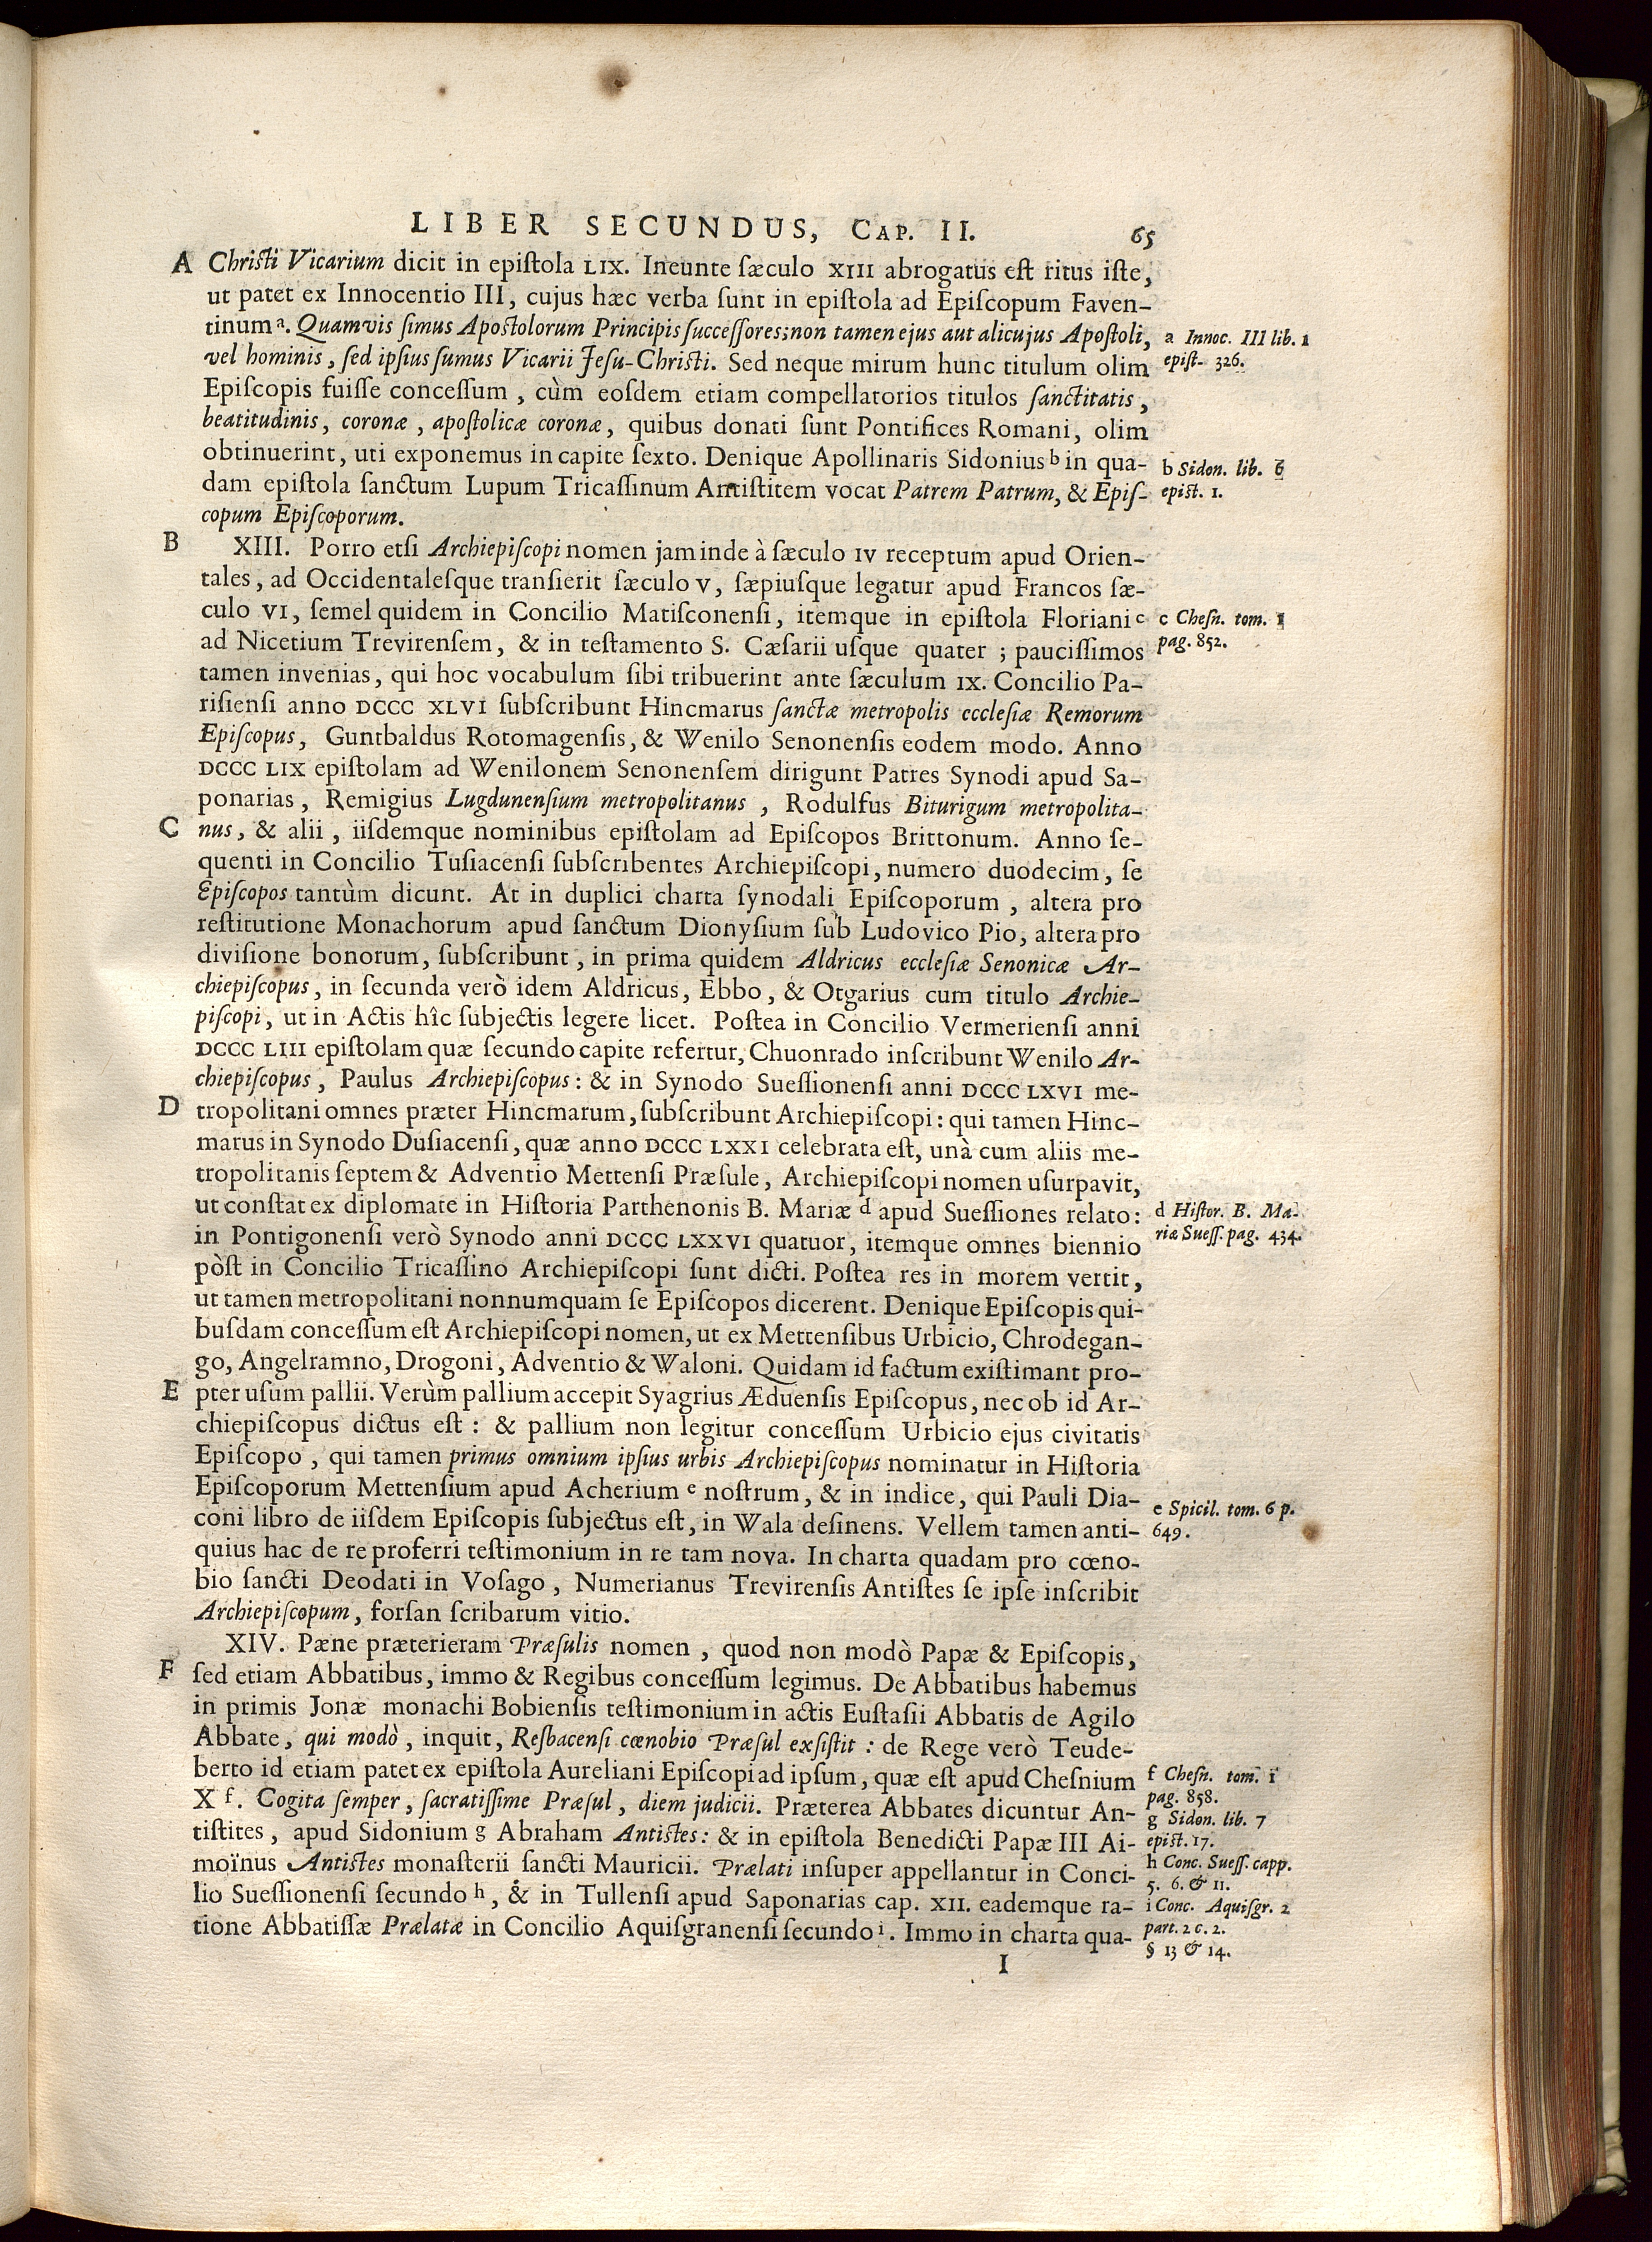 LIBER SECUNDUS, CAP. II. 65
A Chriſti Vicarium dicit in epiſtola LIX. Ineunte ſæculo XIII abrogatus eſt ritus iſte,
ut patet ex Innocentio III, cujus hæc verba ſunt in epiſtola ad Epiſcopum Faven-
tinum a. Quamvis ſimus Apoſtolorum Principis ſucceſſores; non tamen ejus aut alicujus Apoſtoli,
vel hominis, ſed ipſius ſumus Vicarii Jeſu-Chriſti. Sed neque mirum hunc titulum olim
Epiſcopis fuiſſe conceſſum, cùm eoſdem etiam compellatorios titulos ſanctitatis,
beatitudinis, coronæ, apoſtolicæ coronæ, quibus donati ſunt Pontifices Romani, olim
obtinuerint, uti exponemus in capite ſexto. Denique Apollinaris Sidonius b in qua-
dam epiſtola ſanctum Lupum Tricaſſinum Antiſtitem vocat Patrem Patrum, & Epiſ-
copum Epiſcoporum.
B XIII. Porro etſi Archiepiſcopi nomen jam inde à ſæculo IV receptum apud Orien-
tales, ad Occidentaleſque tranſierit ſæculo V, ſæpiuſque legatur apud Francos ſæ-
culo VI, ſemel quidem in Concilio Matiſconenſi, itemque in epiſtola Floriani c
ad Nicetium Trevirenſem, & in teſtamento S. Cæſarii uſque quater; pauciſſimos
tamen invenias, qui hoc vocabulum ſibi tribuerint ante ſæculum IX. Concilio Pa-
riſienſi anno DCCC XLVI ſubſcribunt Hincmarus ſanctæ metropolis eccleſiæ Remorum
Epiſcopus, Guntbaldus Rotomagenſis, & Wenilo Senonenſis eodem modo. Anno
DCCC LIX epiſtolam ad Wenilonem Senonenſem dirigunt Patres Synodi apud Sa-
ponarias, Remigius Lugdunenſium metropolitanus, Rodulfus Biturigum metropolita-
C nus, & alii, iiſdemque nominibus epiſtolam ad Epiſcopos Brittonum. Anno ſe-
quenti in Concilio Tuſiacenſi ſubſcribentes Archiepiſcopi, numero duodecim, ſe
Epiſcopos tantùm dicunt. At in duplici charta ſynodali Epiſcoporum, altera pro
reſtitutione Monachorum apud ſanctum Dionyſium ſub Ludovico Pio, altera pro
diviſione bonorum, ſubſcribunt, in prima quidem Aldricus eccleſiæ Senonicæ Ar-
chiepiſcopus, in ſecunda verò idem Aldricus, Ebbo, & Otgarius cum titulo Archie-
piſcopi, ut in Actis hîc ſubjectis legere licet. Poſtea in Concilio Vermerienſi anni
DCCC LIII epiſtolam quæ ſecundo capite refertur, Chuonrado inſcribunt Wenilo Ar-
chiepiſcopus, Paulus Archiepiſcopus: & in Synodo Sueſſionenſi anni DCCC LXVI me-
D tropolitani omnes præter Hincmarum, ſubſcribunt Archiepiſcopi: qui tamen Hinc-
marus in Synodo Duſiacenſi, quæ anno DCCC LXXI celebrata eſt, unà cum aliis me-
tropolitanis ſeptem & Adventio Mettenſi Præſule, Archiepiſcopi nomen uſurpavit,
ut conſtat ex diplomate in Hiſtoria Parthenonis B. Mariæ d apud Sueſſiones relato:
in Pontigonenſi verò Synodo anni DCCC LXXVI quatuor, itemque omnes biennio
pòſt in Concilio Tricaſſino Archiepiſcopi ſunt dicti. Poſtea res in morem vertit,
ut tamen metropolitani nonnumquam ſe Epiſcopos dicerent. Denique Epiſcopis qui-
buſdam conceſſum eſt Archiepiſcopi nomen, ut ex Mettenſibus Urbicio, Chrodegan-
go, Angelramno, Drogoni, Adventio & Waloni. Quidam id factum exiſtimant pro-
E pter uſum pallii. Verùm pallium accepit Syagrius Æduenſis Epiſcopus, nec ob id Ar-
chiepiſcopus dictus eſt: & pallium non legitur conceſſum Urbicio ejus civitatis
Epiſcopo, qui tamen primus omnium ipſius urbis Archiepiſcopus nominatur in Hiſtoria
Epiſcoporum Mettenſium apud Acherium e noſtrum, & in indice, qui Pauli Dia-
coni libro de iiſdem Epiſcopis ſubjectus eſt, in Wala deſinens. Vellem tamen anti-
quius hac de re proferri teſtimonium in re tam nova. In charta quadam pro cœno-
bio ſancti Deodati in Voſago, Numerianus Trevirenſis Antiſtes ſe ipſe inſcribit
Archiepiſcopum, forſan ſcribarum vitio.
XIV. Pæne præterieram Præſulis nomen, quod non modò Papæ & Epiſcopis,
F ſed etiam Abbatibus, immo & Regibus conceſſum legimus. De Abbatibus habemus
in primis Jonæ monachi Bobienſis teſtimonium in actis Euſtaſii Abbatis de Agilo
Abbate, qui modò, inquit, Reſbacenſi cœnobio Præſul exſiſtit: de Rege verò Teude-
berto id etiam patet ex epiſtola Aureliani Epiſcopi ad ipſum, quæ eſt apud Cheſnium
X f. Cogita ſemper, ſacratiſſime Præſul, diem judicii. Præterea Abbates dicuntur An-
tiſtites, apud Sidonium g Abraham Antiſtes: & in epiſtola Benedicti Papæ III Ai-
moïnus Antiſtes monaſterii ſancti Mauricii. Prælati inſuper appellantur in Conci-
lio Sueſſionenſi ſecundo h, & in Tullenſi apud Saponarias cap. XII. eademque ra-
tione Abbatiſſæ Prælatæ in Concilio Aquiſgranenſi ſecundo i. Immo in charta qua-
I
a Innoc. III lib. 1
epiſt. 326.
b Sidon. lib. 6
epiſt. 1.
c Cheſn. tom. 1
pag. 852.
d Hiſtor. B. Ma-
riæ Sueſſ. pag. 434.
e Spicil. tom. 6 p.
649.
f Cheſn. tom. 1
pag. 858.
g Sidon. lib. 7
epiſt. 17.
h Conc. Sueſſ. capp.
5. 6. & 11.
i Conc. Aquiſgr. 2
part. 2 c. 2.
§ 13 & 14.